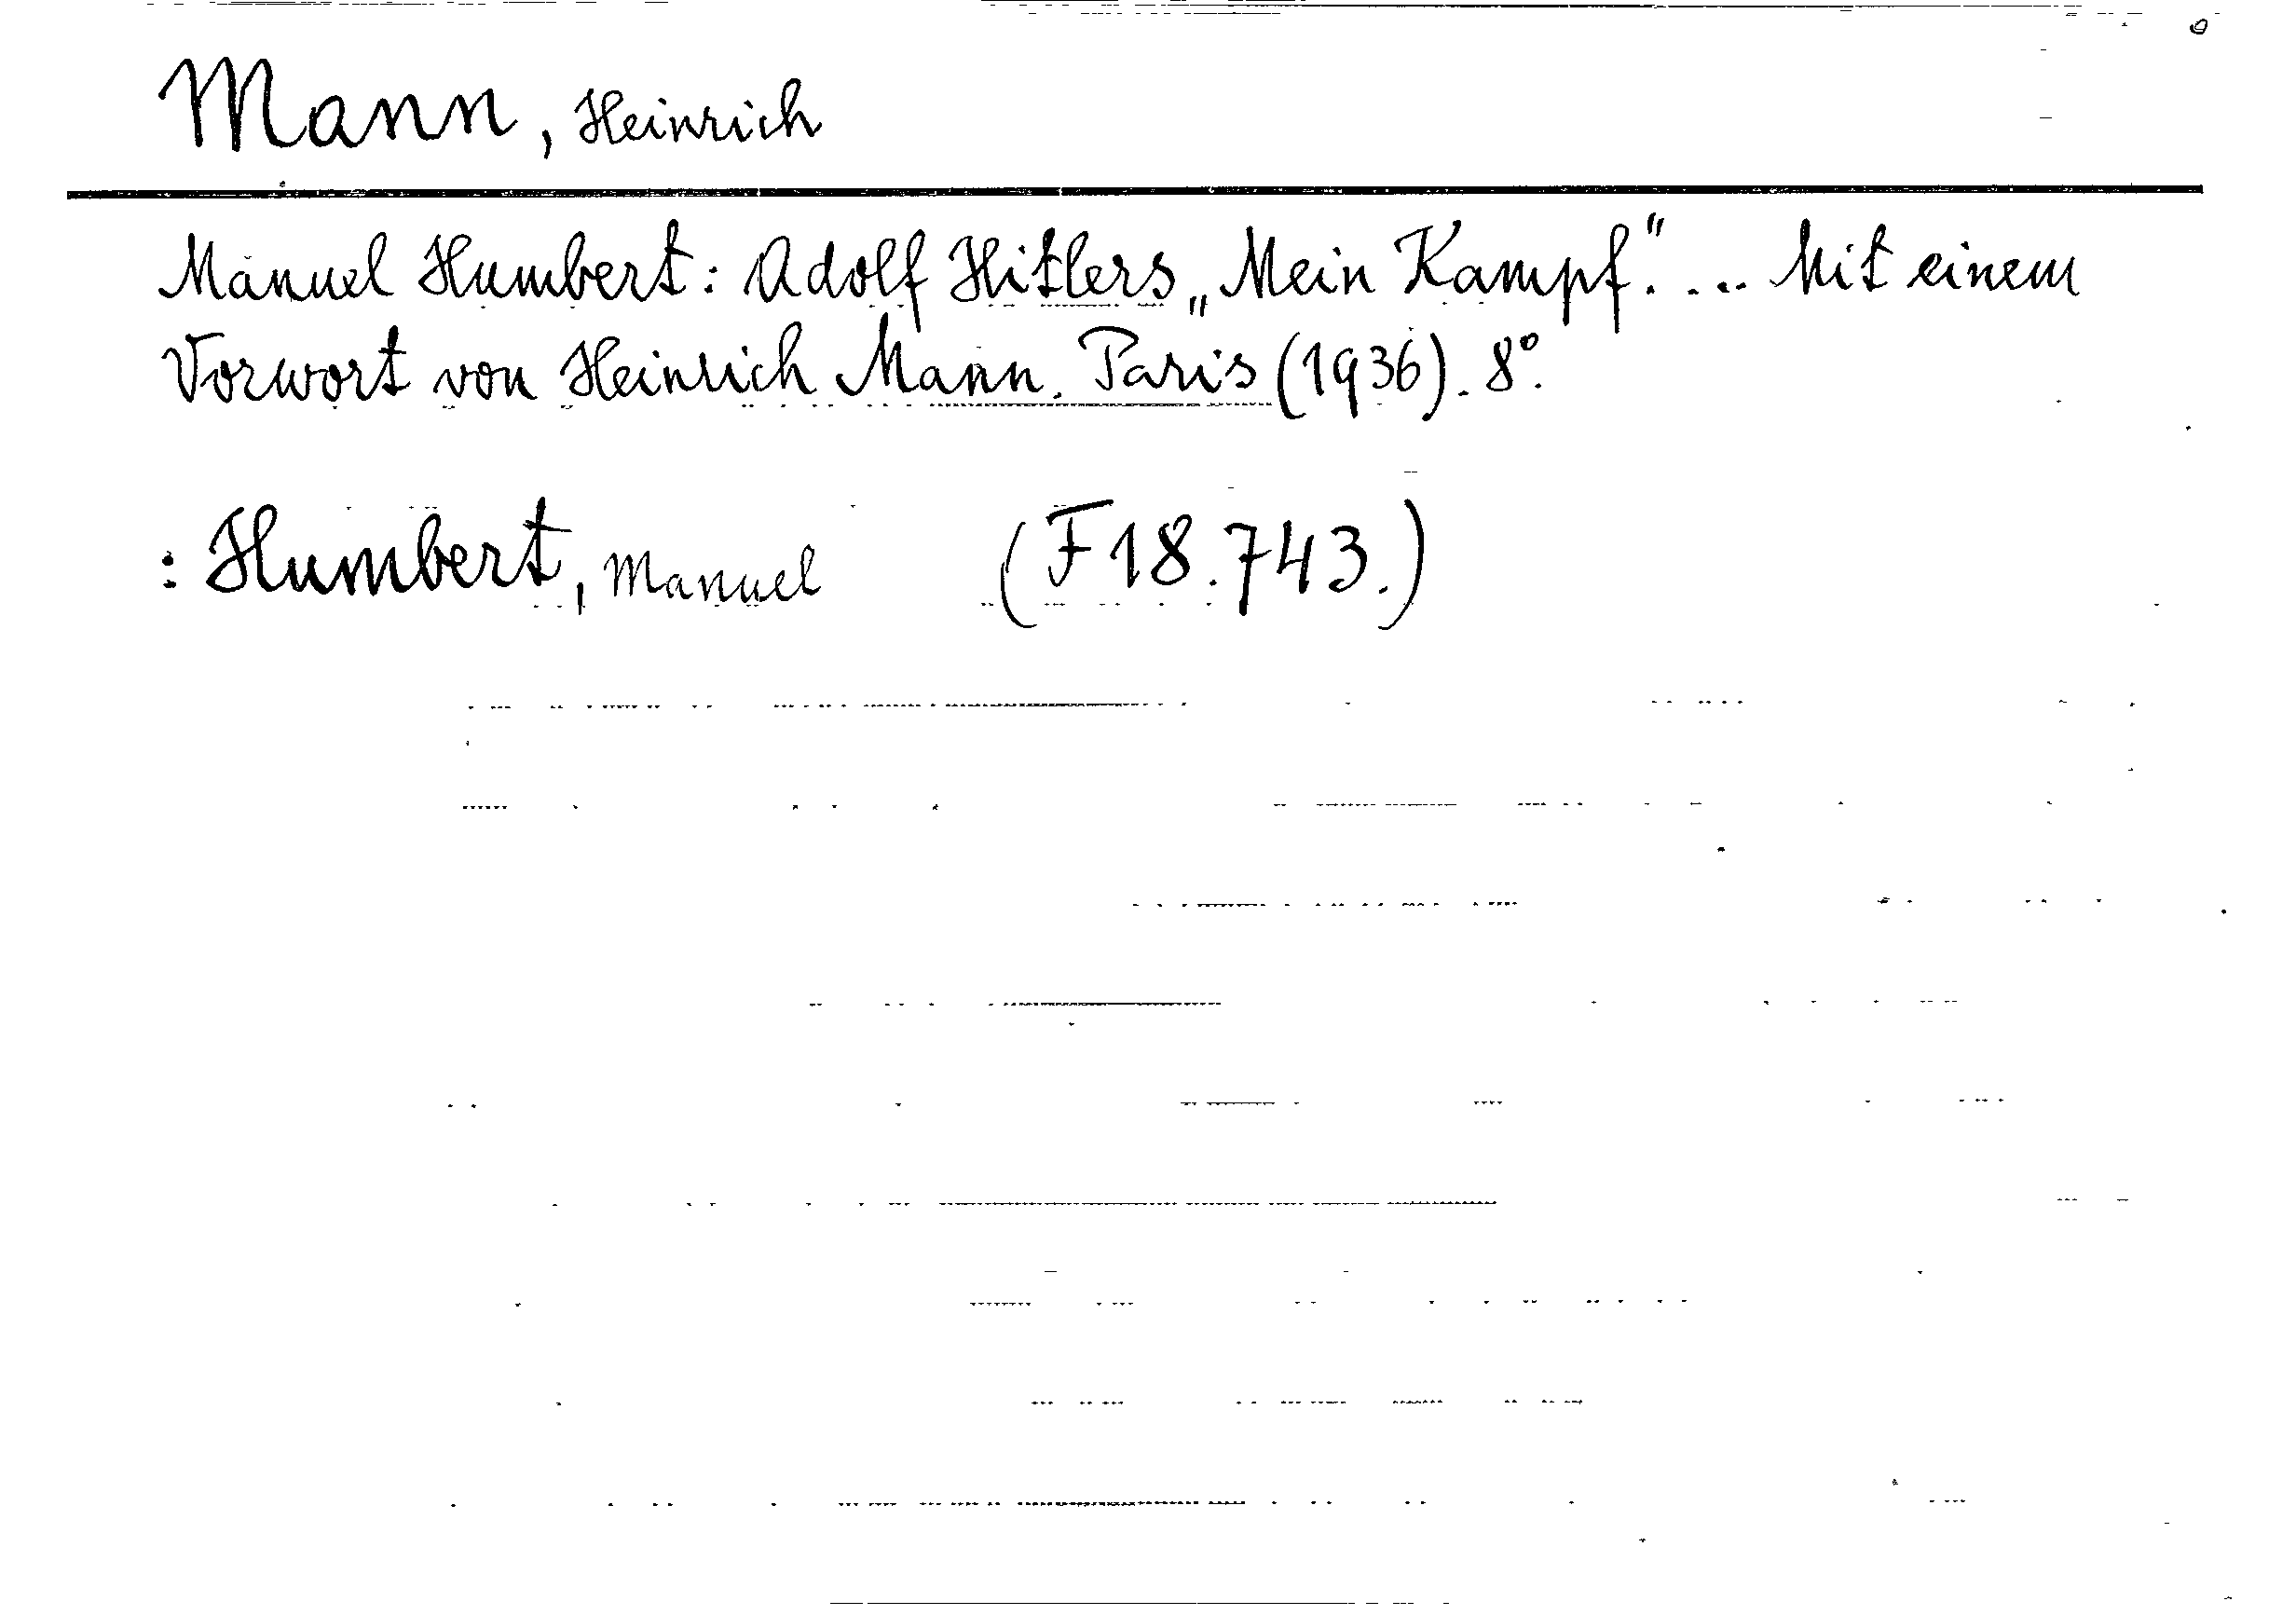 Mann, Heinrich
Manuel Humbert: Adolf Hitlers „Mein Kampf". ... Mit einem
Vorwort von Heinrich Mann. Paris (1936). 8°.
: Humbert, Manuel (F 18.743.)